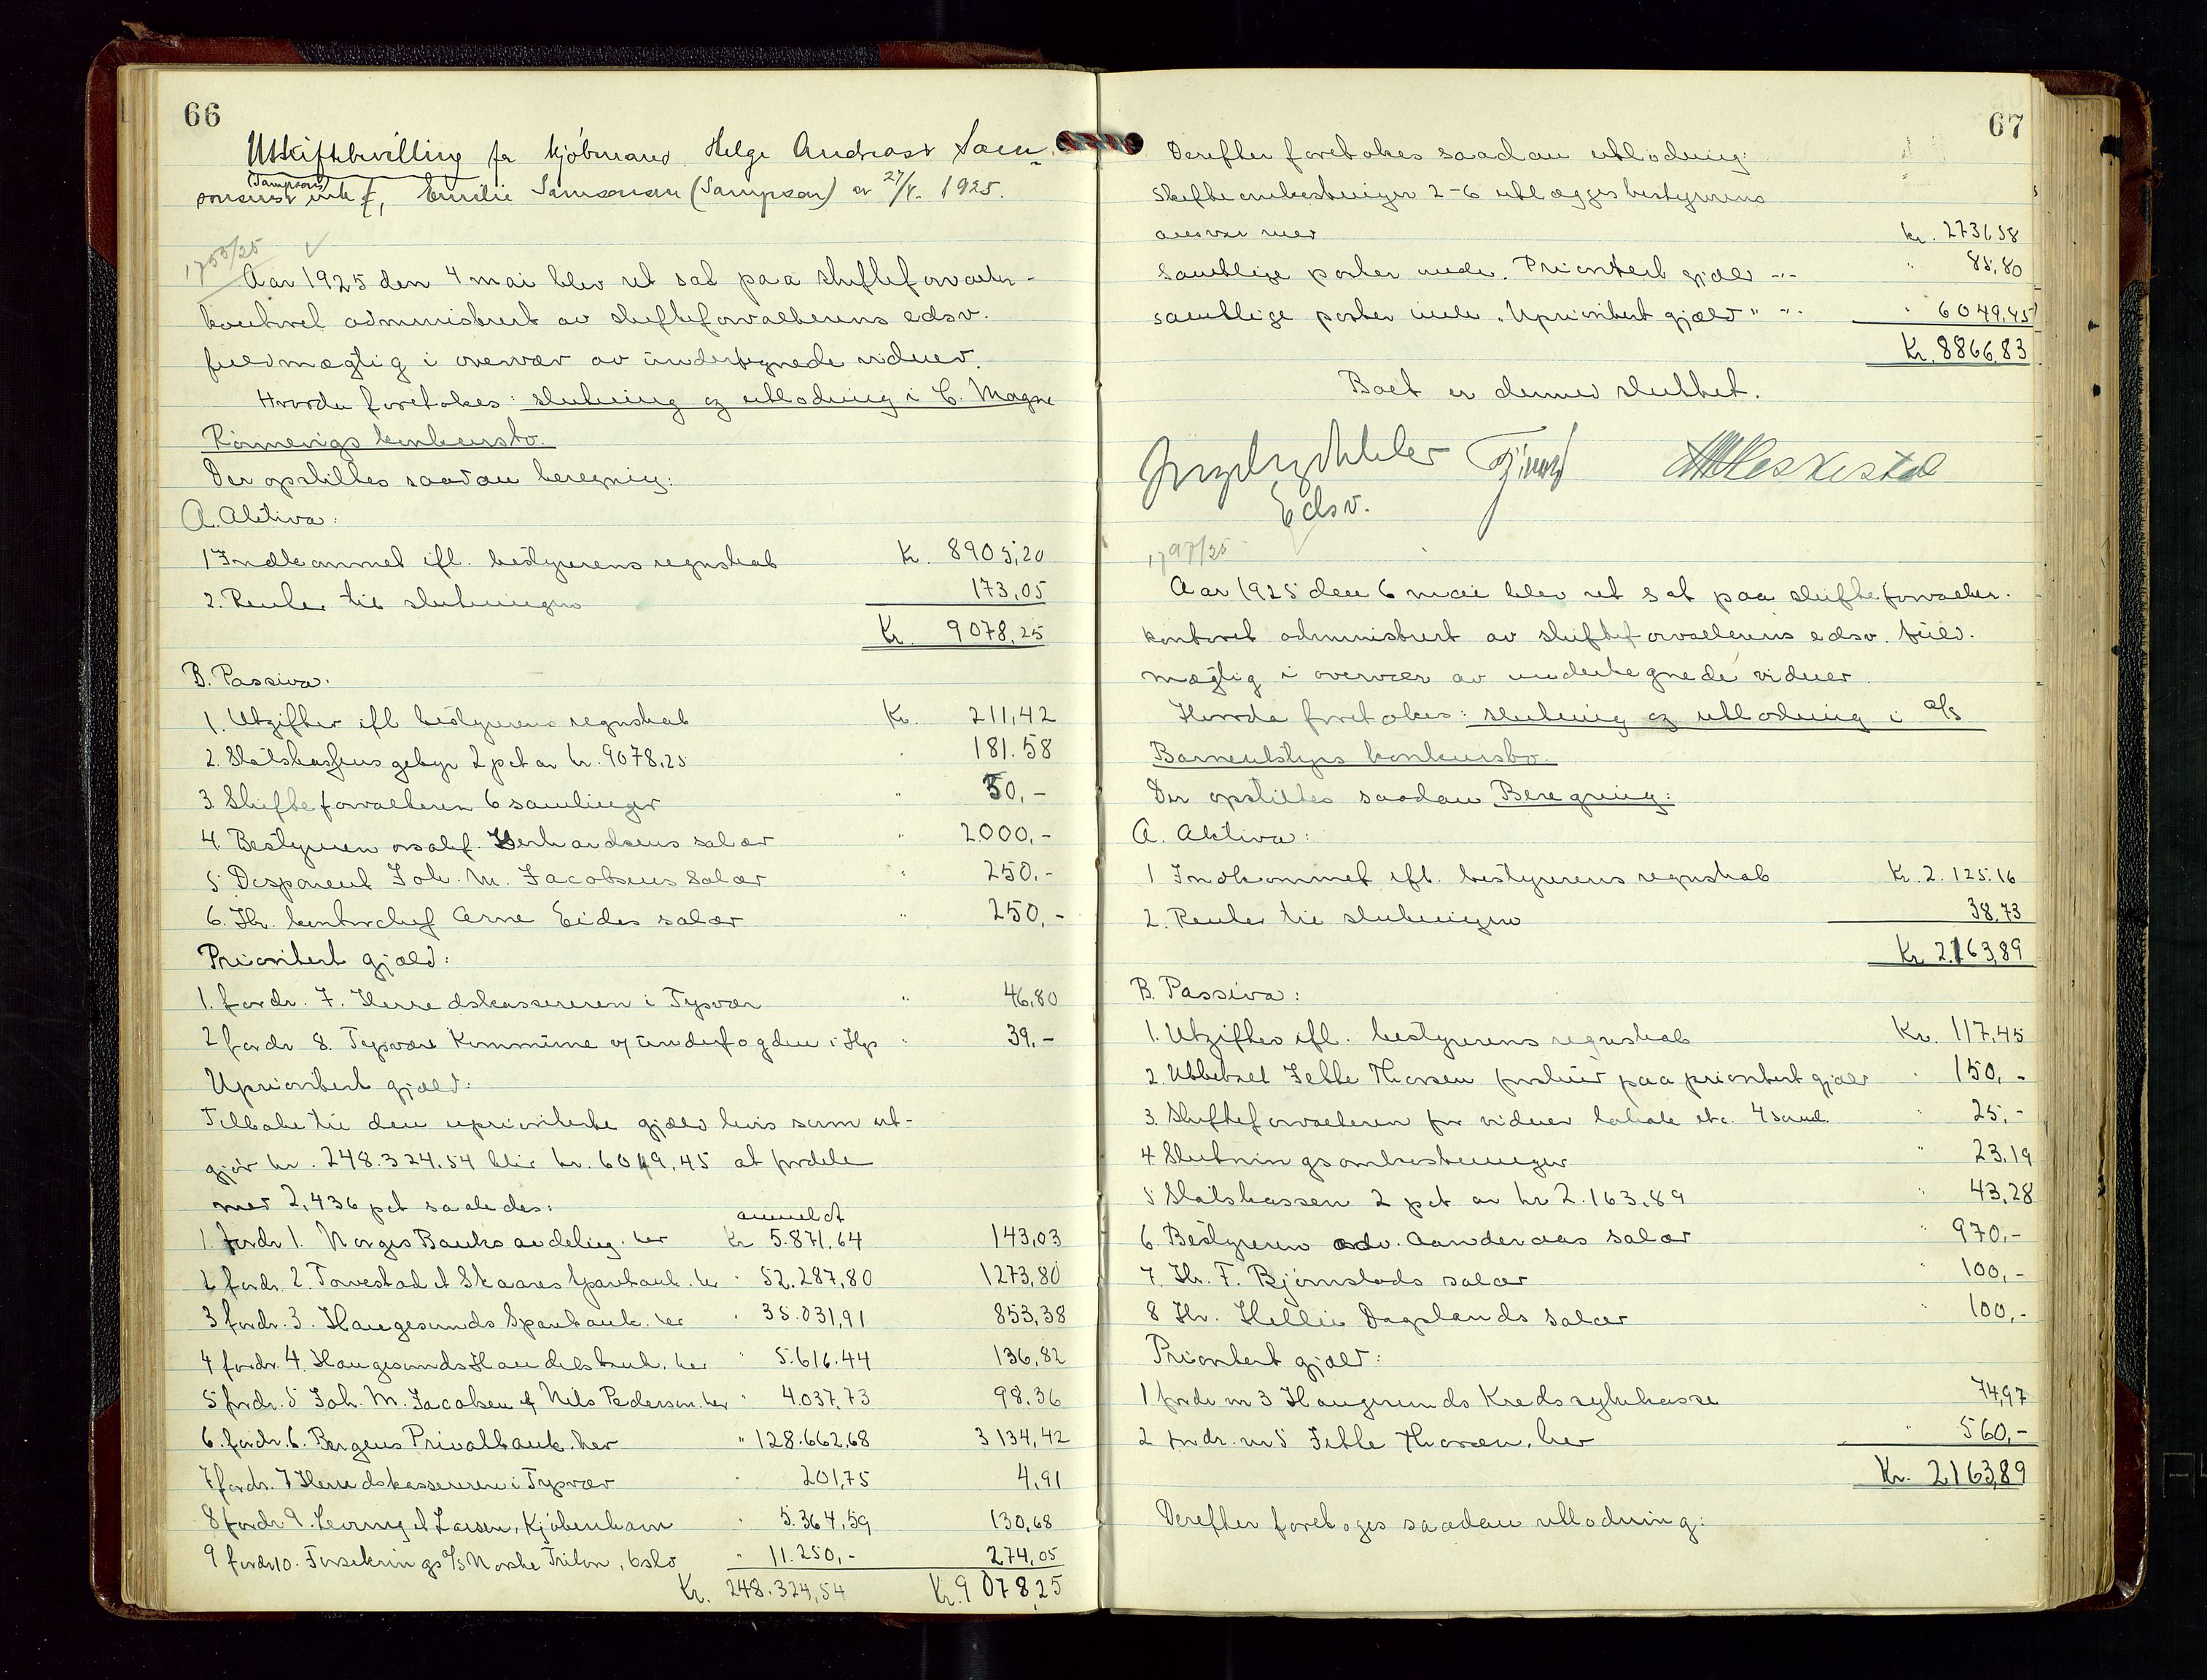 66
Utskiftebevilling for kjöbmand Helge Andreas Sam-
(Sampson)
sonsens enke f, Emilie Samsonsen (Sampson) av 27/4. 1925.
1753/25
Aar 1925 den 4 mai blev ret sat paa skifteforvalter-
kontoret administrert av skifteforvalterens edsv.
fuldmægtig i overvær av undertegnede vidner.
Hvorda foretokes: slutning og utlodning i C. Magne
Rönnevigs konkursbo.
Der opstilles saadan beregning:
A. Aktiva:
1 Indkommet ifl. bestyrerens regnskab Kr. 8905,20
2. Renter til slutningen 173,05
Kr. 9078,25
B. Passiva:
1. Utgifter ifl bestyrerens regnskab Kr. 211,42
2. Statskassens gebyr 2 pct av kr. 9078,25 " 181.58
3 Skifteforvalteren 6 samlinger " 50,-
4. Bestyreren o.r.sakf. Gerhardsens salær " 2000,-
5 Disponent Joh. M. Jacobsens salær " 250.-
6. Hr. kontorchef Arne Eides salær " 250,-
Prioritert gjæld:
1. fordr. 7. Herredskassereren i Tysvær " 46,80
2 fordr 8. Tysvær Kommune v/ underfogden i Hgs " 39,-
Uprioritert gjæld:
Tilbake til den uprioriterte gjæld hvis sum ut-
gjör kr. 248.324.54 blir kr. 6049,45 at fordele
med 2,436 pct saaledes:
anmeldt
1. fordr 1. Norges Banks avdeling. her Kr 5.871.64 143,03
2 fordr. 2. Torvestad & Skaares Sparebank. her " 52.287,80 1273,80
3 fordr. 3. Haugesunds Sparebank. her " 35.031,91 853,38
4 fordr. 4. Haugesunds Handelsbank. her " 5.616.44 136,82
5 fordr. 5 Joh. M. Jacobsen & Nils Pederson. her " 4.037,73 98.36
6. fordr. 6. Bergens Privatbank. her " 128.662,68 3134,42
7 fordr. 7 Herredskassereren i Tysvær " 201,75 4,91
8 fordr 9. Levring & Larsen, Kjöbenhavn " 5.364,59 130,68
9 fordr 10. Forsikrings A/S Norske Triton, Oslo " 11.250,- 274,05
Kr. 248.324,54 Kr. 9078,25
67
Derefter foretokes saadan utlodning:
Skifteomkostninger 2-6 utlægges bestyrerens
ansvar med Kr. 2731,58
Samtlige poster under. Prioritert gjæld -"- " 85,80
samtlige poster under "Uprioritert gjæld" -"- " 6049,45
Kr. 8866,83
Boet er dermed sluttet.
Edsv.
1797/25
Aar 1925 den 6 mai blev ret sat paa skifteforvalter-
kontoret administrert av skifteforvalterens edsv. fuld-
mægtig i overvær av undertegnede vidner.
Hvorda foretokes: slutning og utlodning i A/S
Barneutstyrs konkursbo.
Der opstilles saadan Beregning:
A. Aktiva:
1 Indkommet ifl. bestyrerens regnskab Kr. 2.125.16
2. Renter til slutningen 38,73
Kr 2.163,89
B. Passiva:
1. Utgifter ifl. bestyrerens regnskab Kr. 117,45
2. Utbetalt Jette Thorsen forskud paa prioritert gjæld " 150,-
3. Skifteforvalteren for vidner lokale etc. 4 saml. " 25,-
4. Slutningsomkostninger " 23,19
5 Statskassen 2 pct av kr 2.163,89 " 43,28
6. Bestyreren adv. Aanderaas salær " 970,-
7. Hr. F. Bjørnstads salær " 100,-
8 Hr. Hellie Dagslands salær " 100,-
Prioritert gjæld:
1 fordr nr 3 Haugesunds Kredssykekasse 74,97
2 fordr. nr 5 Jette Thorsen, her " 560,-
Kr. 2163,89
Derefter foretoges saadan utlodning: